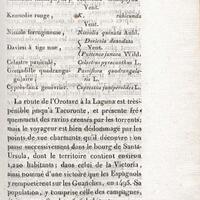 Vent.
Kennedie rouge, K. rubicunda
Vent.
Niciolo ferrugineuse,
Daviesia denudata
Daviesi à tige nue, Vent.
Pultenæa juncea Willd.
Célastre paniculé, Celastrus pyracanthus L.
Grenadille quadrangulaire, Passiflora quadrangularis L.
Cyprès faux genévrier, Cupressus juniperoïdes L.
La route de l'Orotava à la Laguna est très-
pénible jusqu'à Tacoronte, et présente fré-
quemment des ravins creusés par les torrents;
mais le voyageur est bien dédommagé par les
points de vue charmants qu'il découvre : on
passe successivement dans le bourg de Santa-
Ursula, dont le territoire contient environ
habitants; dans celui de la Victoria,
ainsi nommé d'une victoire que les Espagnols
y remportèrent sur les Guanches, en 1495. Sa
population, y comprise celle des campagnes,